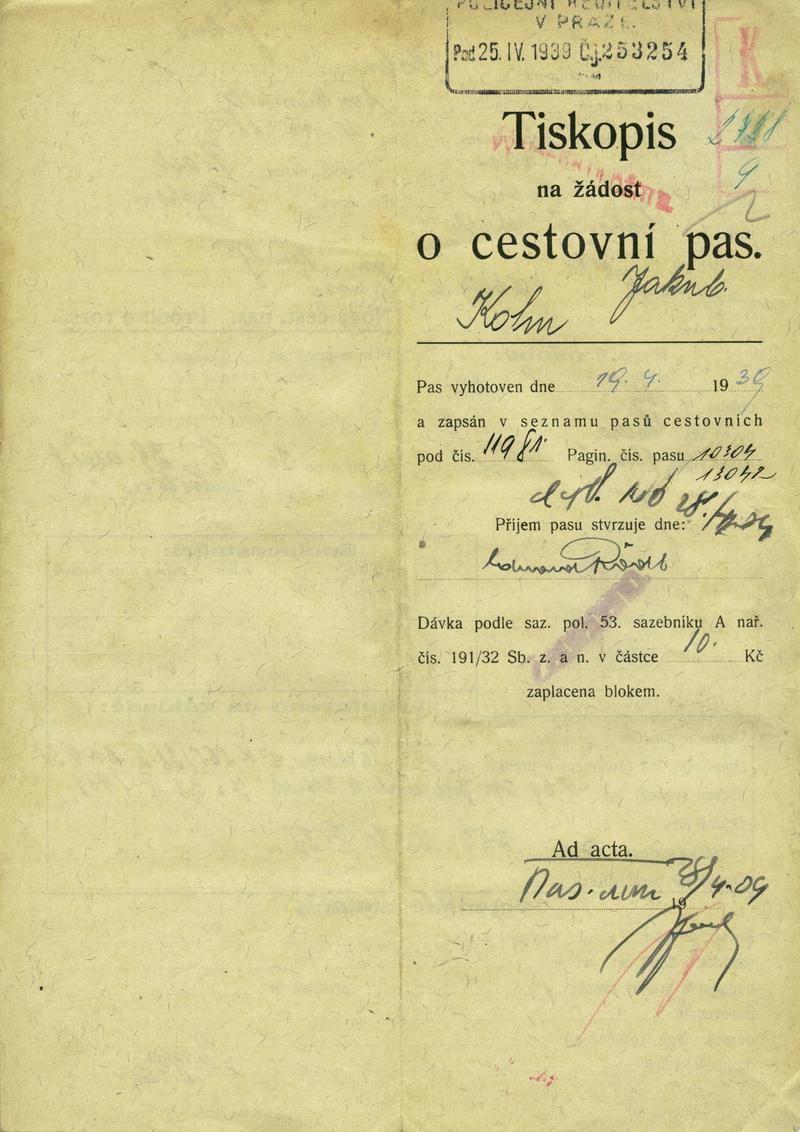 POLICEJNÍ ŘEDITELSTVÍ
V PRAZE.
Pod 25. IV. 1939 Čj. 253254
K
Tiskopis
na žádost
o cestovní pas.
Kohn Jakub.
Pas vyhotoven dne 19. 4. 1939
a zapsán v seznamu pasů cestovních
pod čís. 11981 Pagin. čís. pasu 10304
13042
Příjem pasu stvrzuje dne:
Dávka podle saz. pol. 53. sazebníku A nař.
čís. 191/32 Sb. z. a n. v částce 10. Kč
zaplacena blokem.
Ad acta.